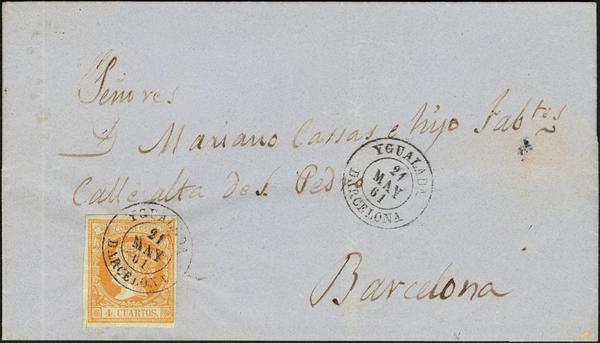 Señores
D. Mariano Cassas e hijo Fabtes
Calle alta de S. Pedro
Barcelona
YGUALADA
21
MAY
61
BARCELONA
YGUALADA
21
MAY
61
BARCELONA
4 CUARTOS.